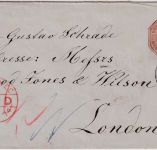 Gustav Schrade
dresser: Messrs
ood Jones & Wilson
London
D